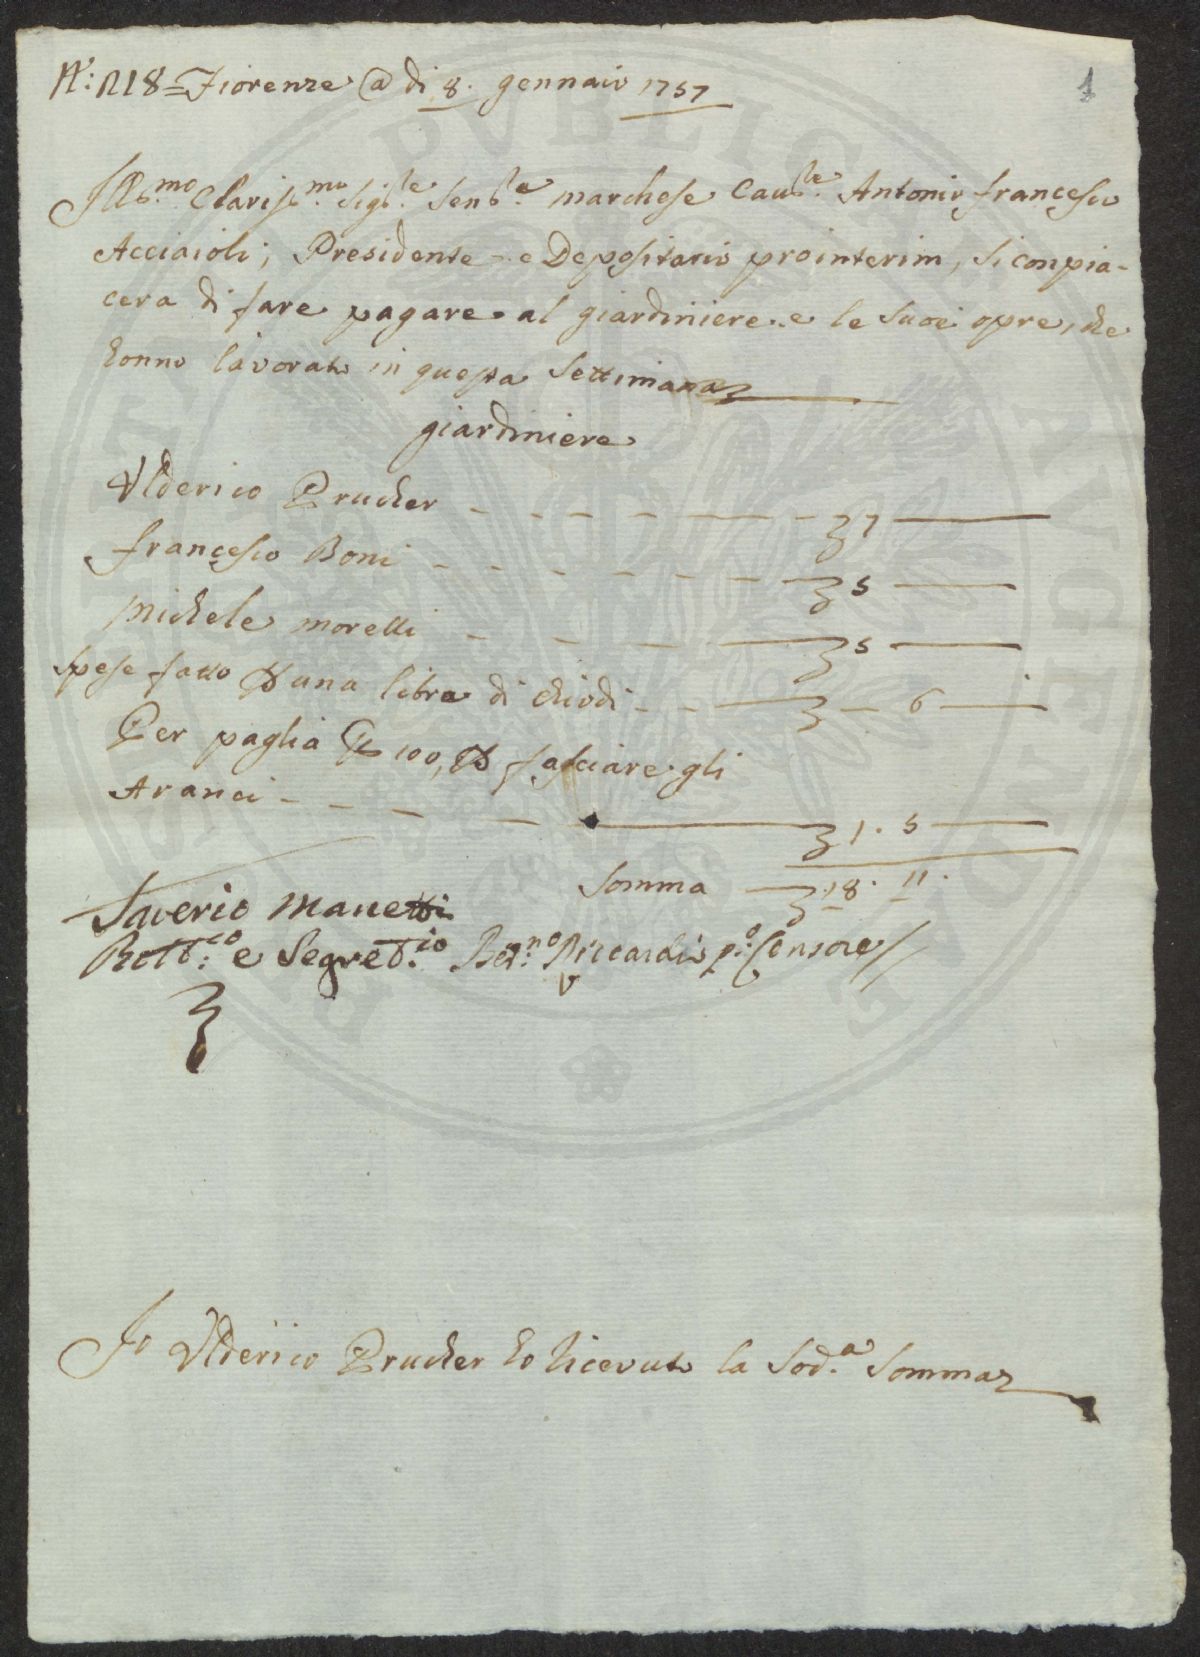 N.° 218 = Fiorenze @ di 8. gennaio 1757
1
Ill.mo Clariss.mo Sig.le Sen.e marchese Cau.le Antonio francesco
Acciaioli; Presidente e Depositario prointerim, Si conpia-
cera di fare pagare al giardiniere e le Suoi opre, che
honno lavorato in questa Settimana
giardiniere
Ulderico Prucker - - - - 7
francesco Boni - - - - 5
Michele morelli - - - 5
Spese fatto P una libra di chiodi - - - 6
Per paglia 100, P fasciare gli
Aranci - - - - 1. 5
Somma 18. 11.
Saverio Manetti
Bott.co e Segret.io Ber.no Riccardi p.o Censore
Jo Ulderico Prucker ho Ricevuto la Sod.a Somma